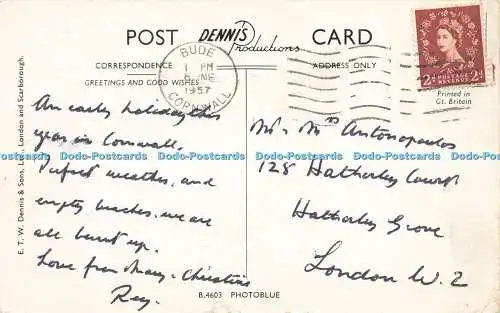 POST DENNIS Productions CARD
CORRESPONDENCE
ADDRESS ONLY
GREETINGS AND GOOD WISHES
BUDE
1 PM
6 JNE
1957
CORNWALL
2D POSTAGE REVENUE 2D
Printed in
Gt. Britain
An early holiday this
year in Cornwall.
Perfect weather, and
empty beaches, we are
all burnt up.
Love from Mary - Christine
Ray.
Mr & Mrs Antonopoulos
128 Hatherley Court
Hatherley Grove
London W.2
E. T. W. Dennis & Sons, Ltd., London and Scarborough.
B.4603 PHOTOBLUE
Dodo-Postcards Dodo-Postcards Dodo-Postcards Dodo-Postcards Dodo-Postcards Dodo-Postcards